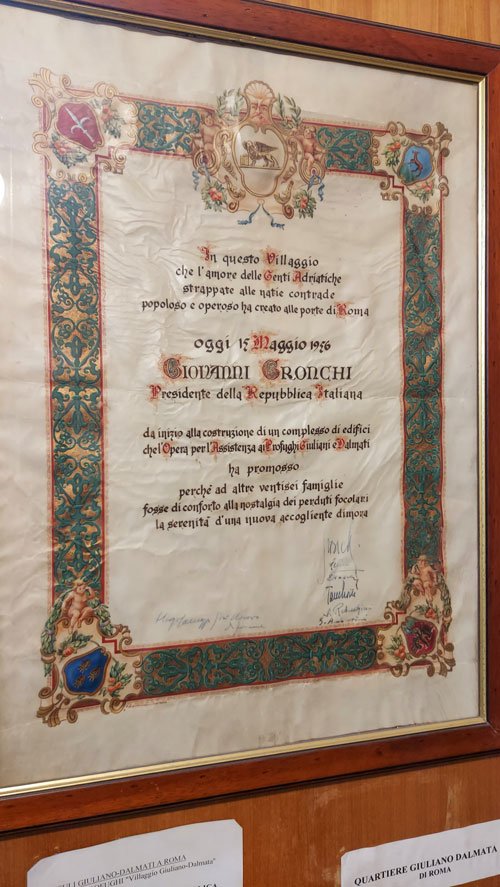 In questo Villaggio
che l'amore delle Genti Adriatiche
strappate alle natie contrade
popoloso e operoso ha creato alle porte di Roma
oggi 15 Maggio 1956
GIOVANNI GRONCHI
Presidente della Repubblica Italiana
da inizio alla costruzione di un complesso di edifici
che l'Opera per l'Assistenza ai Profughi Giuliani e Dalmati
ha promosso
perché ad altre ventisei famiglie
fosse di conforto alla nostalgia dei perduti focolari
la serenita' d'una nuova accogliente dimora
ULI GIULIANO-DALMATI A ROMA
OFUGHI "Villaggio Giuliano-Dalmata"
LICA
QUARTIERE GIULIANO DALMATA
DI ROMA